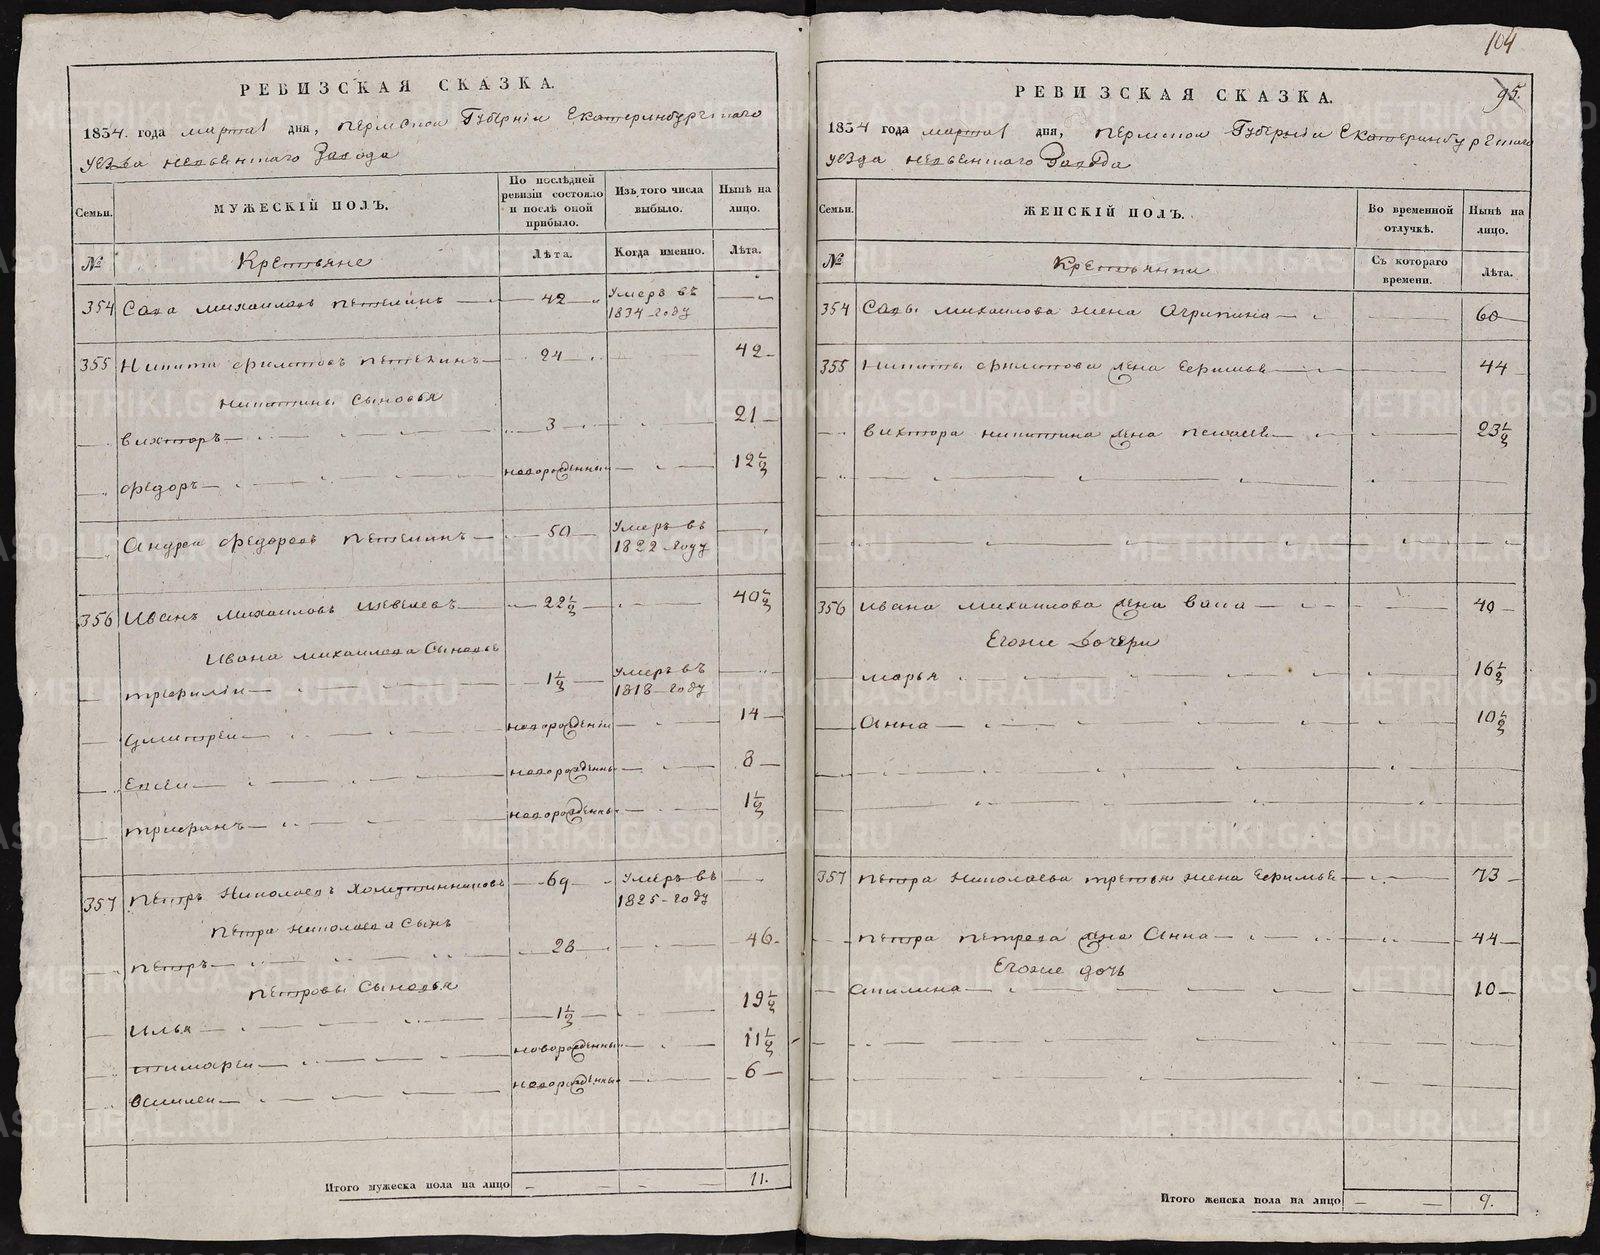 104
РЕВИЗСКАЯ СКАЗКА.
1834. года марта 1 дня, Пермской Губерніи Екатеринбургскаго
уезда невьянскаго Завода
Семьи.
МУЖЕСКІЙ ПОЛЪ.
По послѣдней ревизіи состояло и послѣ оной прибыло.
Изъ того числа выбыло.
Нынѣ на лицо.
№
Крестьяне
Лѣта.
Когда именно.
Лѣта.
354 Сава михаиловъ 42 Умеръ въ 1834 году
355 Никита филатовъ 24 42
никитины Сыновья
викторъ 3 21
федоръ новорожденный 12½
Андреи федоровъ 50 Умеръ въ 1822 году
356 Иванъ михаиловъ Шевелевъ 22½ 40½
Ивана михаилова Сыновья
трифилiи 1½ Умеръ въ 1818 году
дмитреи новорожденный 14
Елисеи новорожденный 8
трифанъ новорожденный 1½
357 Петръ Николаевъ 69 Умеръ въ 1825 году
Петра николаева Сынъ
Петръ 28 46
Петровы Сыновья
Илья 1½ 19½
тимофеи новорожденный 11½
Василеи новорожденный 6
Итого мужеска пола на лицо 11.
РЕВИЗСКАЯ СКАЗКА.
95.
1834 года марта 1 дня, Пермской Губерніи Екатеринбургскаго
уезда невьянскаго Завода
Семьи.
ЖЕНСКІЙ ПОЛЪ.
Во временной отлучкѣ.
Нынѣ на лицо.
№
Крестьянки
Съ котораго времени.
Лѣта.
354 Савы михаилова жена Огрипина 60
355 Никиты филатова жена Ефимья 44
виктора никитина жена 23½
356 Ивана михаилова жена 40
Егоже Дочери
марья 16½
Анна 10½
357 Петра Николаева третья жена Ефимья 73
Петра Петрова жена Анна 44
Егоже дочь
Акилина 10
Итого женска пола на лицо 9.
METRIKI.GASO-URAL.RU